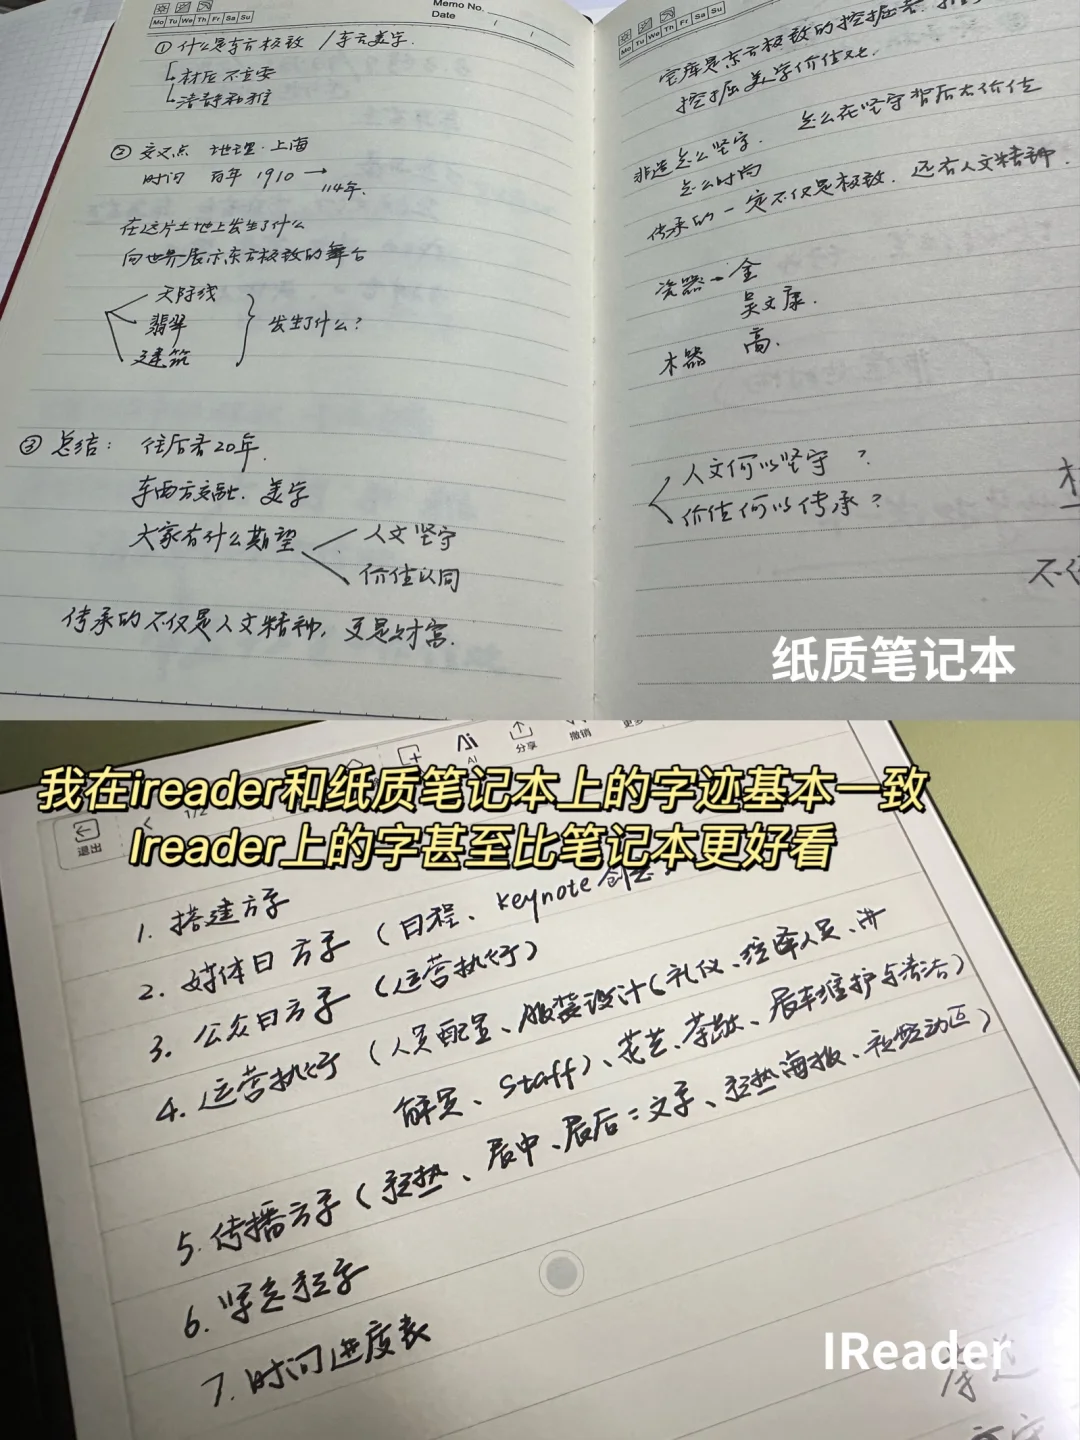 Mo Tu We Th Fr Sa Su
Memo No.
Date
① 什么是东方极致 / 东方美学.
材压不立委
洁静和雅
② 交叉点 地理·上海
时间 百年 1910 → 114年.
在这片土地上发生了什么
向世界展示东方极致的舞台
天际线
翡翠
建筑
发生了什么？
③ 总结： 往后看20年.
东西方交融. 美学
大家有什么期望
人文坚守
价值认同
传承的不仅是人文精神, 更是财富.
Mo Tu We Th Fr Sa Su
宝库是东方极致的挖掘者.
挖掘美学价值
非遗怎么坚守. 怎么在坚守背后去价值
怎么时尚
传承的一定不仅是极致. 还有人文精神.
瓷器 金
吴文康.
木器 高.
人文何以坚守？
价值何以传承？
不仅
纸质笔记本
AI
分享
撤销
更多
我在ireader和纸质笔记本上的字迹基本一致
Ireader上的字甚至比笔记本更好看
退出
< 1/2
1. 搭建方案
2. 媒体日方案（日程、keynote
3. 公众日方案（运营执行）
4. 运营执行（人员配置、服装设计（礼仪、绘译人员、讲
解员、Staff）、花艺、茶歇、展车维护与清洁）
5. 传播方案（预热、展中、展后：文案、预热海报、视频动画）
6. 紧急预案
7. 时间进度表
IReader